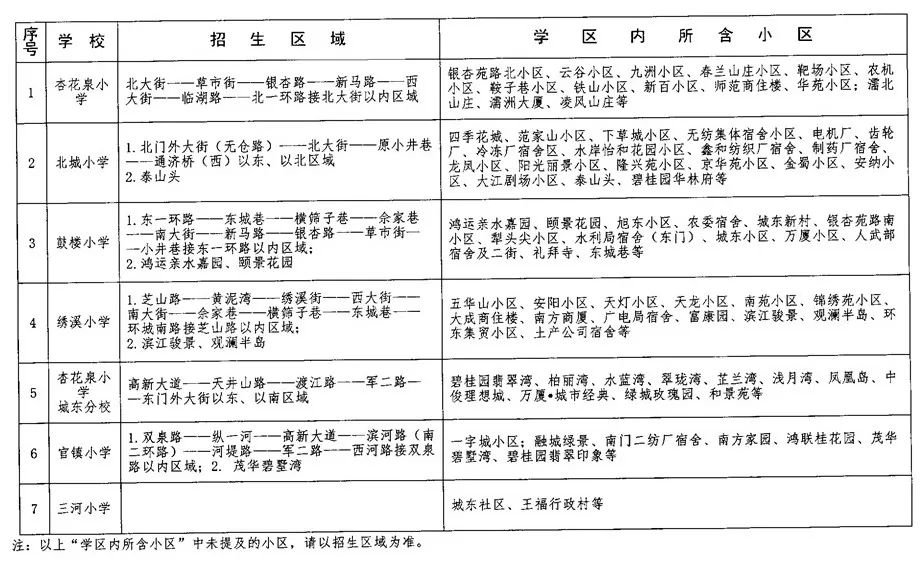 序号 学校 招生区域 学区内所含小区
1 杏花泉小学 北大街——草市街——银杏路——新马路——西大街——临湖路——北一环路接北大街以内区域 银杏苑路北小区、云谷小区、九洲小区、春兰山庄小区、靶场小区、农机小区、鞍子巷小区、铁山小区、新百小区、师范商住楼、华苑小区；濡北山庄、濡洲大厦、凌风山庄等
2 北城小学 1.北门外大街（无仓路）——北大街——原小井巷——通济桥（西）以东、以北区域
2.泰山头 四季花城、范家山小区、下草城小区、无纺集体宿舍小区、电机厂、齿轮厂、冷冻厂宿舍区、水岸怡和花园小区、鑫和纺织厂宿舍、制药厂宿舍、龙凤小区、阳光丽景小区、隆兴苑小区、京华苑小区、金蜀小区、安纳小区、大江剧场小区、泰山头、碧桂园华林府等
3 鼓楼小学 1.东一环路——东城巷——横筛子巷——佘家巷——南大街——新马路——银杏路——草市街——小井巷接东一环路以内区域；
2.鸿运亲水嘉园、颐景花园 鸿运亲水嘉园、颐景花园、旭东小区、农委宿舍、城东新村、银杏苑路南小区、犁头尖小区、水利局宿舍（东门）、城东小区、万厦小区、人武部宿舍及二街、礼拜寺、东城巷等
4 绣溪小学 1.芝山路——黄泥湾——绣溪街——西大街——南大街——佘家巷——横筛子巷——东城巷——环城南路接芝山路以内区域；
2.滨江骏景、观澜半岛 五华山小区、安阳小区、天灯小区、天龙小区、南苑小区、锦绣苑小区、大成商住楼、南方商厦、广电局宿舍、富康园、滨江骏景、观澜半岛、环东集贸小区、土产公司宿舍等
5 杏花泉小学城东分校 高新大道——天井山路——渡江路——军二路——东门外大街以东、以南区域 碧桂园翡翠湾、柏丽湾、水蓝湾、翠珑湾、芷兰湾、浅月湾、凤凰岛、中俊理想城、万厦•城市经典、绿城玫瑰园、和景苑等
6 官镇小学 1.双泉路——纵一河——高新大道——滨河路（南二环路）——河堤路——军二路——西河路接双泉路以内区域；2.茂华碧墅湾 一字城小区；融城绿景、南门二纺厂宿舍、南方家园、鸿联桂花园、茂华碧墅湾、碧桂园翡翠印象等
7 三河小学 城东社区、王福行政村等
注：以上“学区内所含小区”中未提及的小区，请以招生区域为准。